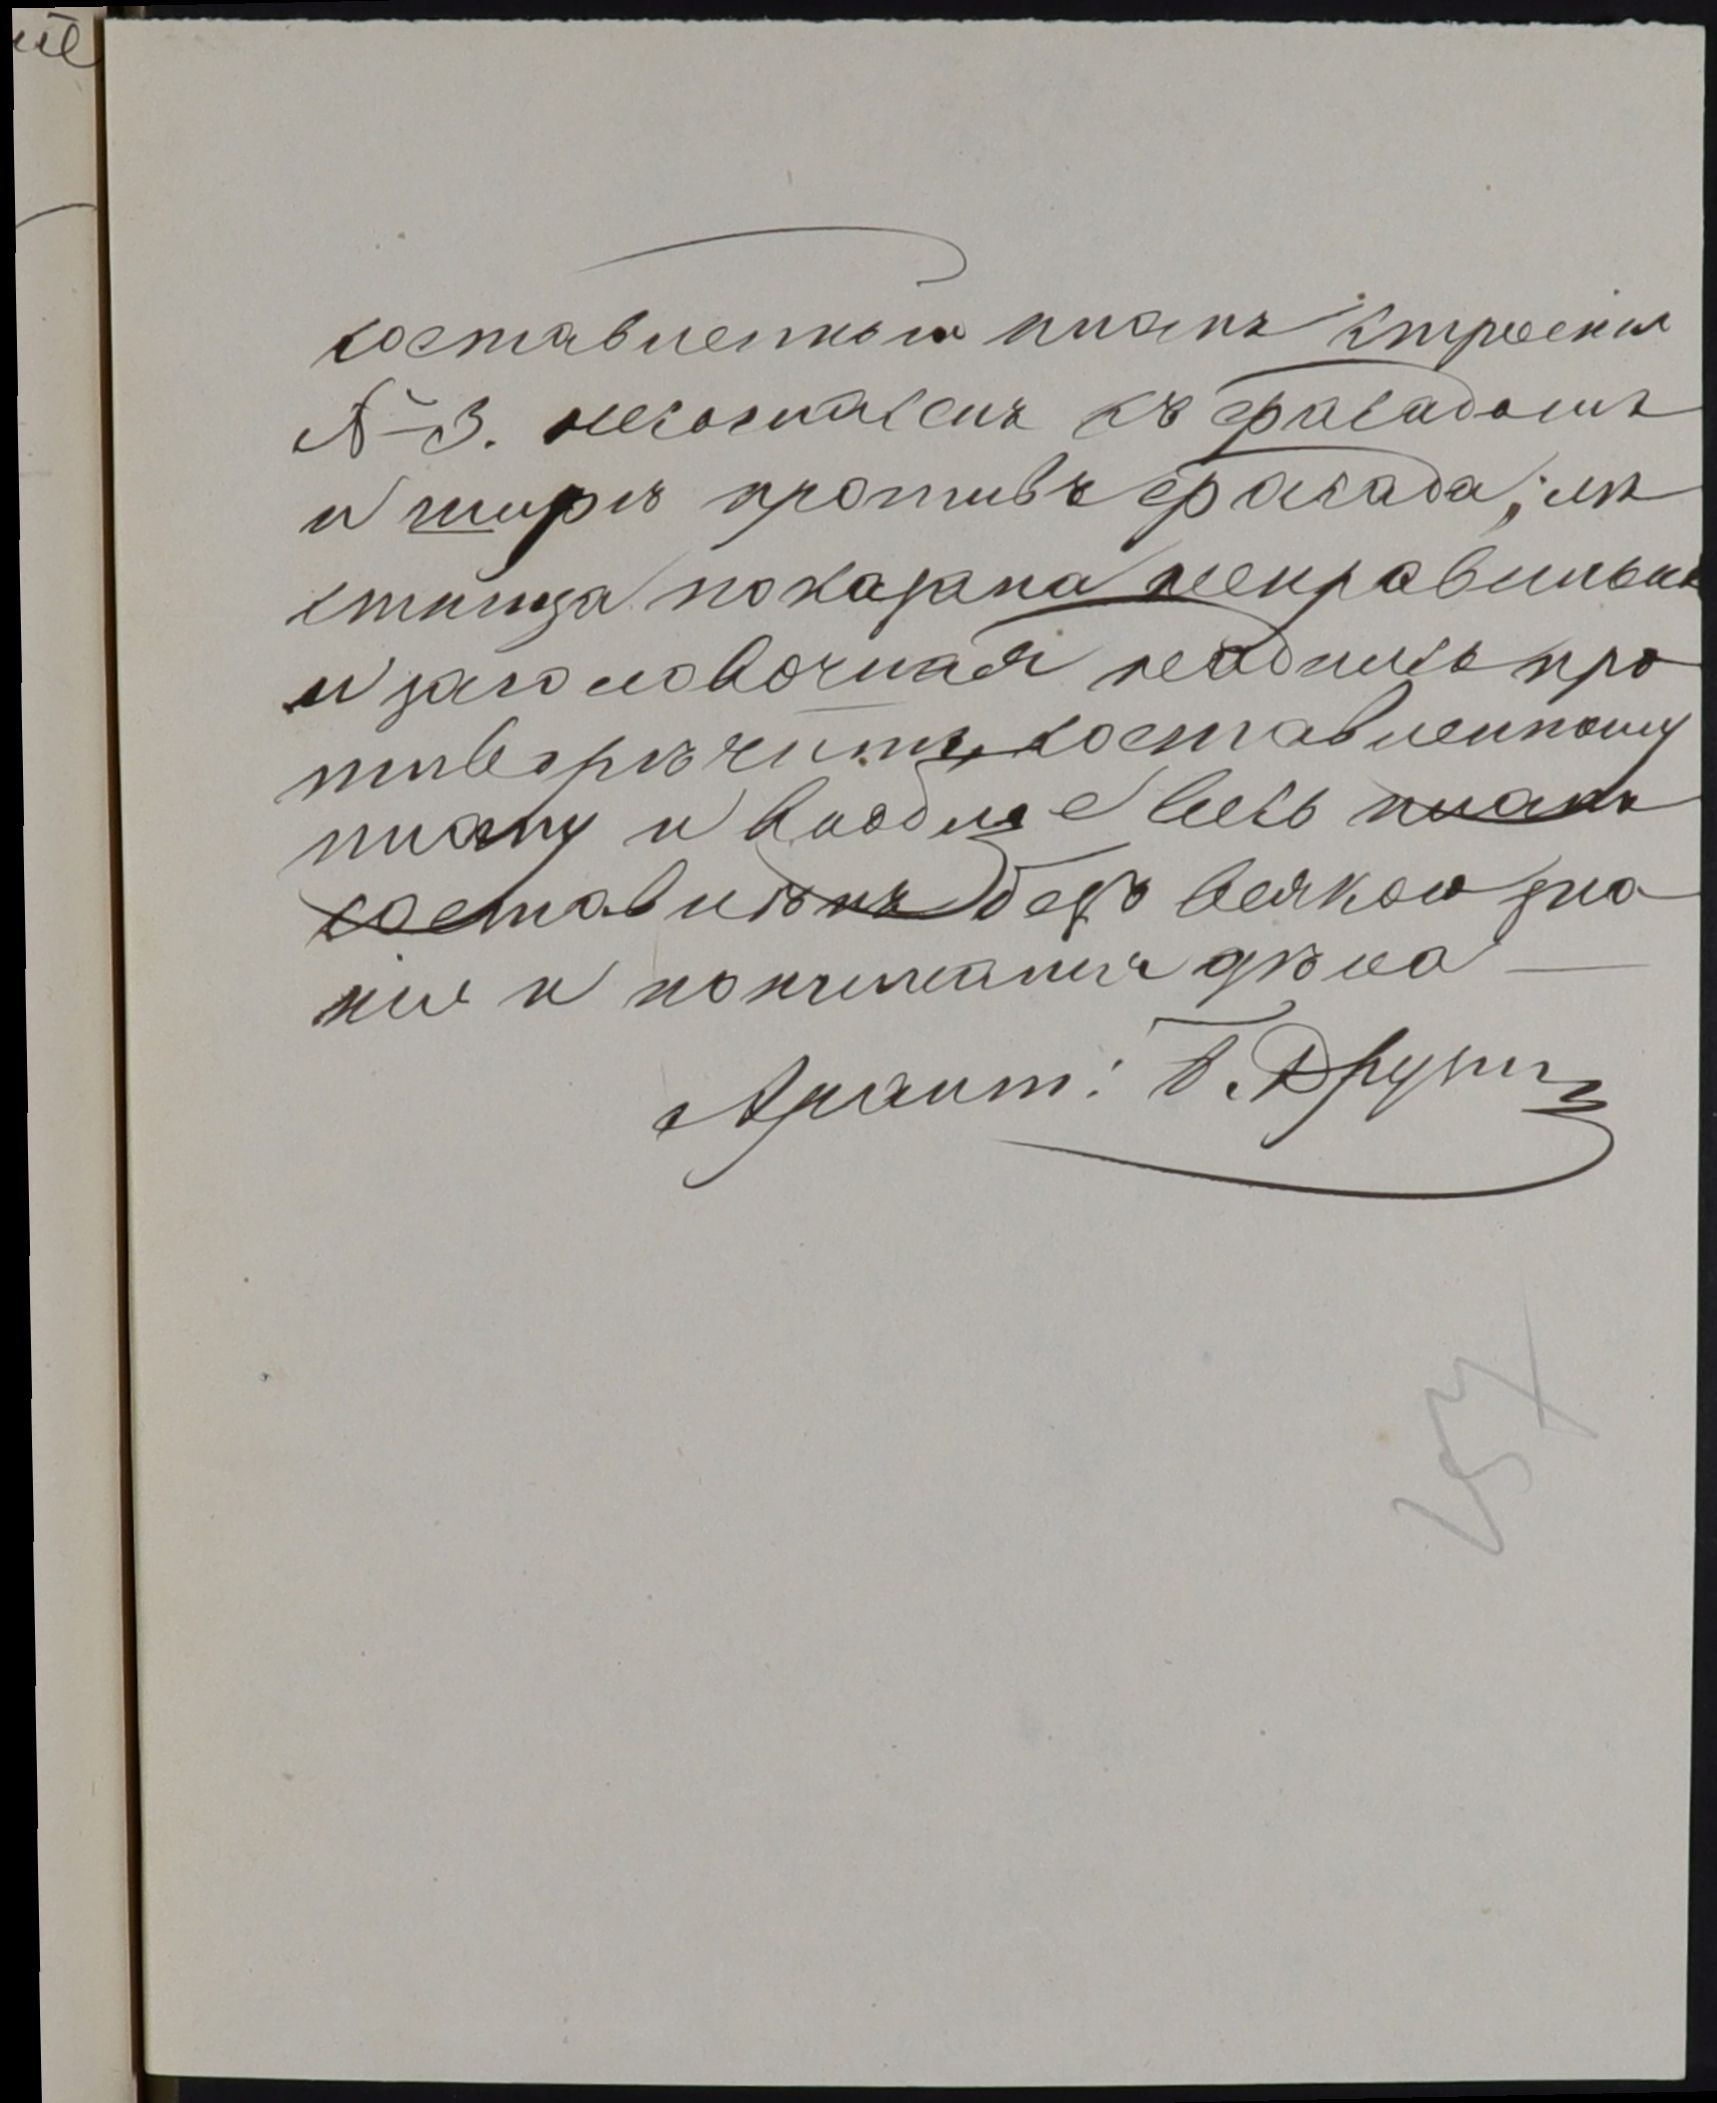 составленный планъ строенія
№ 3. несогласенъ съ фасадомъ
и шире противъ фасада; лѣ
стница показана неправильно
и заголовочная надпись про
тиворѣчитъ составленному
плану и вообще весь планъ
составленъ безъ всякого зна
нія и пониманія дѣла —
Архит: Б. Друри
157